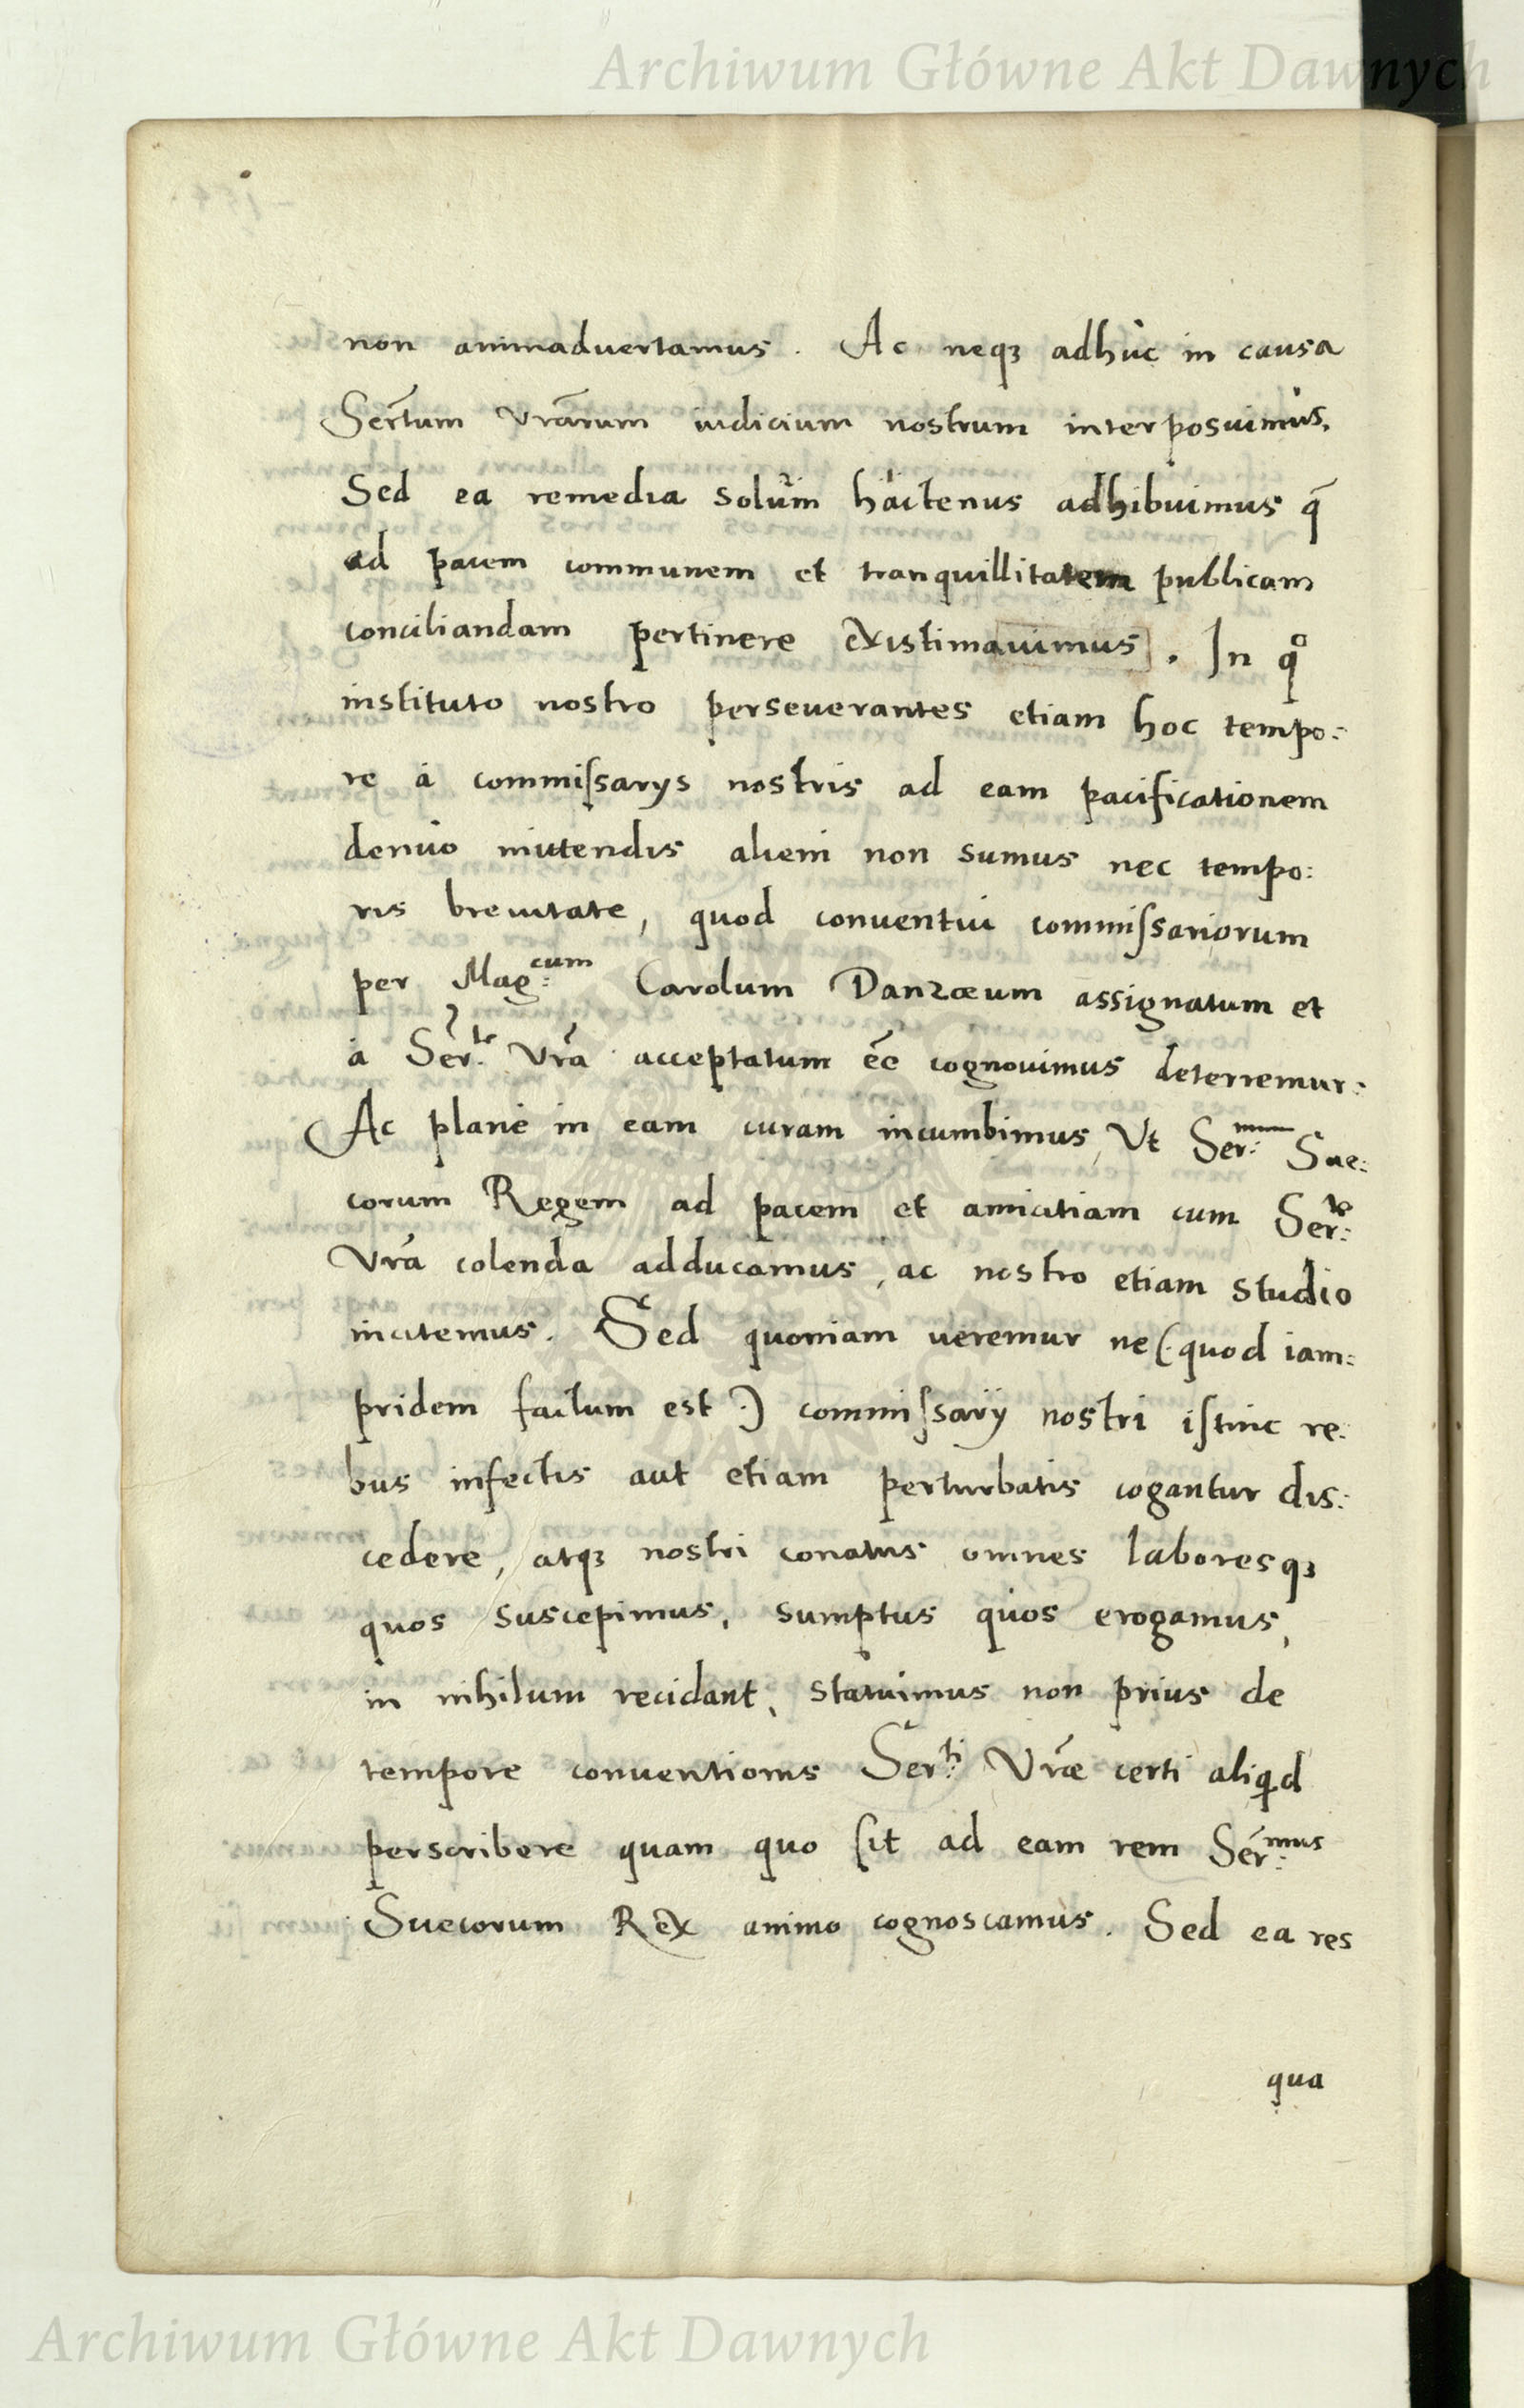 Archiwum Główne Akt Dawnych
non animaduertamus. Ac neqꝫ adhùc in causa
Sert̃um Vrãrum iudicium nostrum interposuimùs,
Sed ea remedia solùm hàctenus adhibuimus q̃
ad pacem communem et tranquillitatem publicam
conciliandam pertinere existimauimus. In qͦ
instituto nostro perseuerantes etiam hoc tempo:
re à commiſsarys nostris ad eam pacificationem
denùo mittendis alieni non sumus nec tempo:
ris breuitate, quod conuentui commiſsariorum
per Mag:ᶜᵘᵐ Carolum Danzæum assignatum et
à Ser:ᵗᵉ Vrã acceptatum eẽ cognouimus deterremur:
Ac planè in eam curam incumbimus, Vt Ser:ᵐᵘᵐ Sue:
corum Regem ad pacem et amicitiam cum Ser:ᵗᵉ
Vrã colendã adducamus, ac nostro etiam studio
incitemus. Sed quoniam ueremur ne (. quod iam:
pridem factum est .) commiſsarij nostri iſtinc re:
bus infectis aut etiam perturbatis cogantur dis:
cedere, atqꝫ nostri conatus omnes laboresqꝫ
quos suscepimus, sumptus quos erogamus,
in nihilum recidant, statuimus non prius de
tempore conuentionis Ser:ᵗⁱ Vræ certi aliqd
perscribere quam quo ſit ad eam rem Ser:ᵐᵘˢ
Suecorum Rex animo cognoscamùs. Sed ea res
qua
Archiwum Główne Akt Dawnych